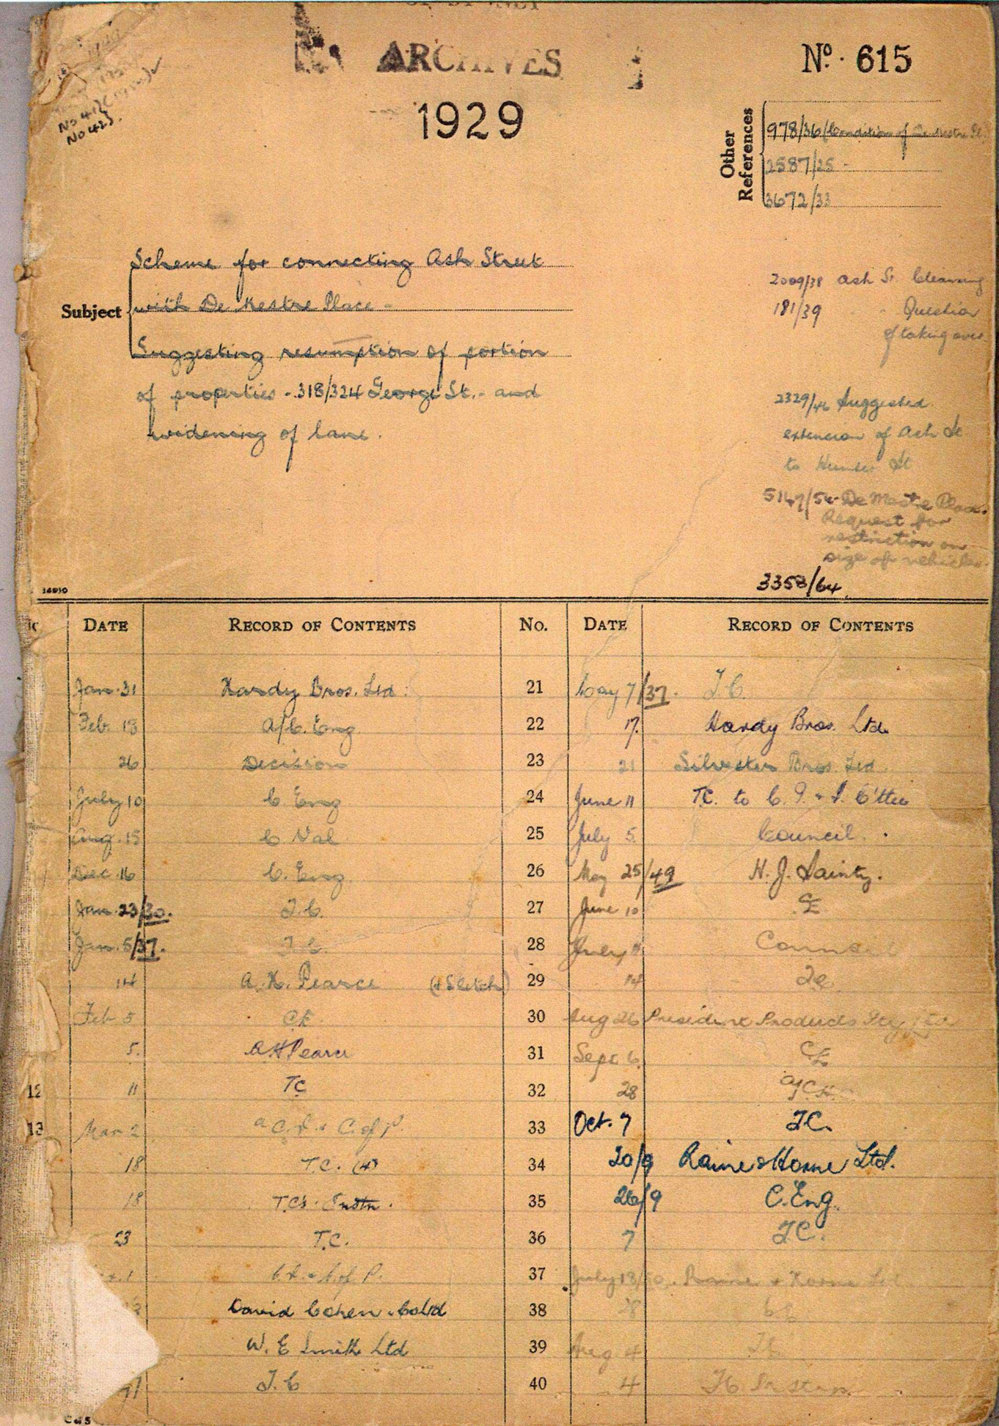 ARCHIVES
1929
No. 615
Other References
978/36 (Condition of De Mestre Pl.)
2587/25 -
3672/33
No 423.
Subject
Scheme for connecting Ash Street
with De Mestre Place -
Suggesting resumption of portion
of properties - 318/324 George St. - and
widening of lane.
2009/38 Ash St. Cleaning
181/39 - Question
of taking over
2329/46 Suggested
extension of Ash St
to Hunter St
5147/54 De Mestre Place.
Request for
restriction on
size of vehicles.
3358/64
DATE RECORD OF CONTENTS No. DATE RECORD OF CONTENTS
Jan. 31 Hardy Bros. Ltd. 21 May 7/37. T.C.
Feb. 13 A/C. Eng 22 17. Hardy Bros. Ltd.
26 Decision 23 21 Silvester Bros Ltd
July 10 C. Eng 24 June 11 T.C. to C. F. & I. C'ttee
Aug. 15 C. Val 25 July 5. Council.
Dec. 16 C. Eng. 26 May 25/49 H. J. Sainty.
Jan. 23/30. T.C. 27 June 10 CE
Jan. 5/37. T.C. 28 July 11 Council
14 A. H. Pearce (& Sketch) 29 14 TC
Feb 5 CE 30 Aug 26 President Products Pty
5. A H Pearce 31 Sept 6. CE
12 11 TC 32 28
13 Mar 2 C of P. 33 Oct. 7 TC.
18 T.C. (4) 34 20/9 Raine & Horne Ltd.
18 T.C's. Instn. 35 26/9 C. Eng.
23 T.C. 36 7 TC.
C.E. & C. of P. 37 July 13/50. Raine & Horne Ltd
David Cohen & Co Ltd 38 28 CE
W. E Smith Ltd 39 Aug 4 TC
T. C 40 4 TC Instn.